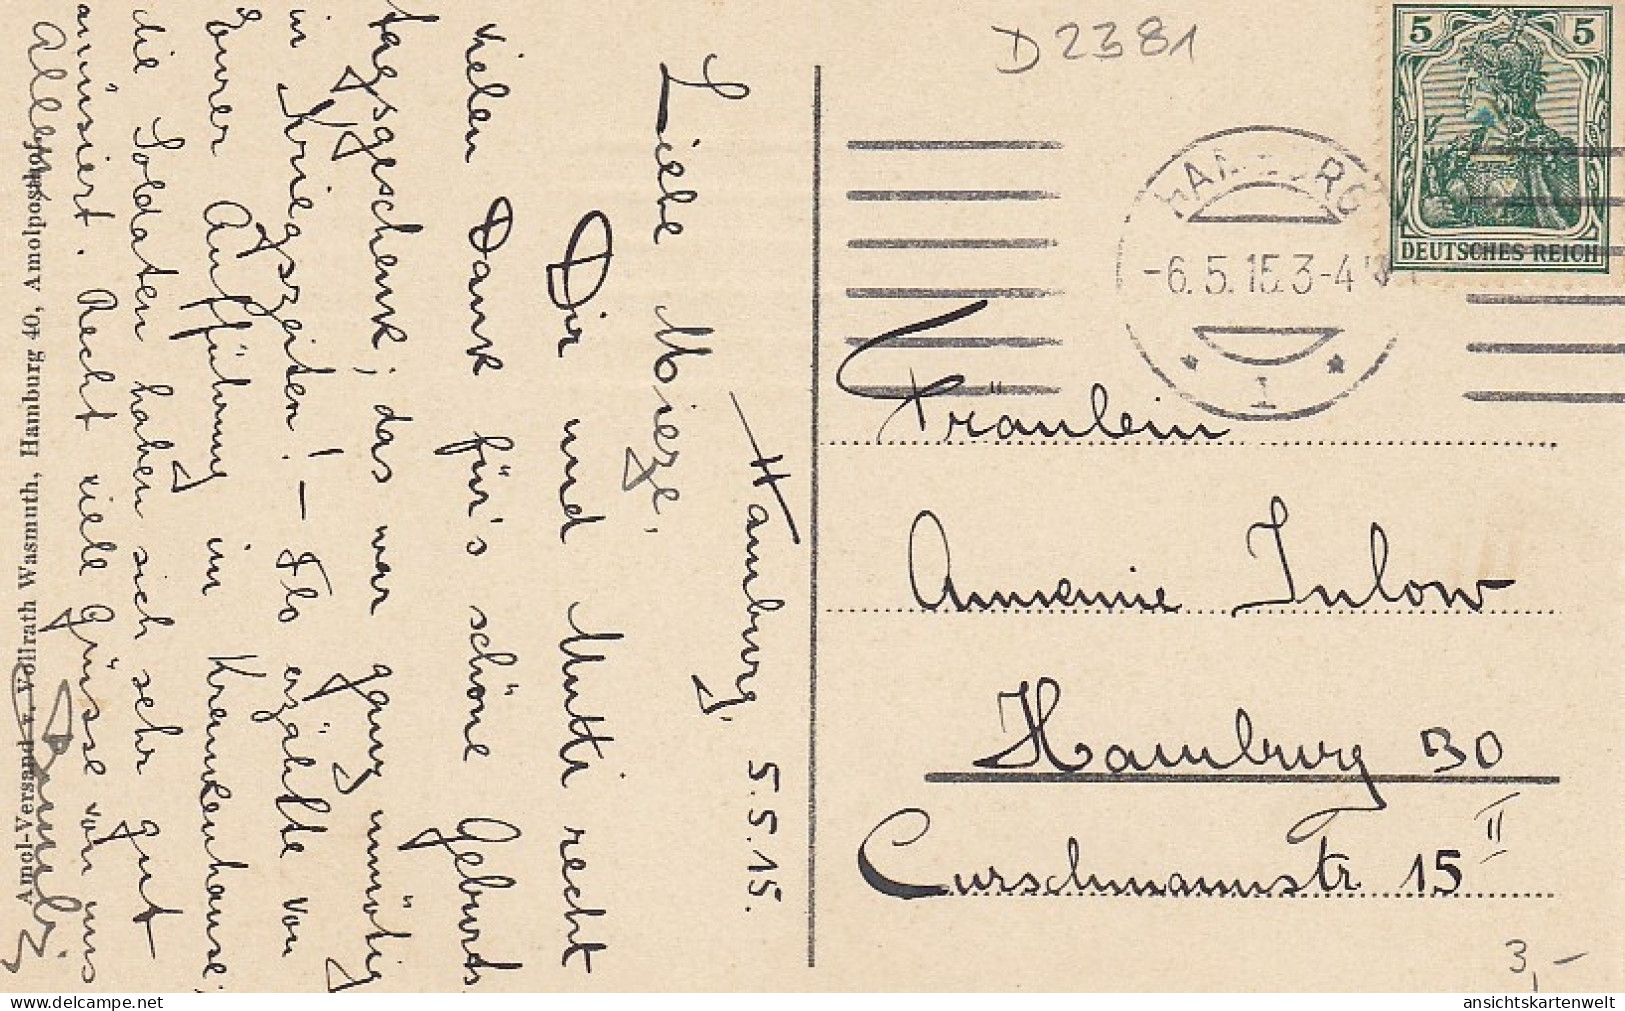 D 2381
5 5
DEUTSCHES REICH
HAMBURG
-6.5.15.3-4
* 1 *
Hamburg, 5.5.15.
Liebe Mieze,
Dir und Mutti recht
vielen Dank für's schöne Geburts
tagsgeschenk; das war ganz unnötig
in Kriegszeiten! – Flo erzählte von
Eurer Aufführung im Krankenhause;
die Soldaten haben sich sehr gut
amüsiert. Recht viele Grüsse von uns
Allen
Amol-Versand v. Vollrath Wasmuth, Hamburg 40, Amolposthof
Fräulein
Annemie Inlow
Hamburg 30
Curschmannstr 15 II
3,-
delcampe.net
ansichtskartenwelt